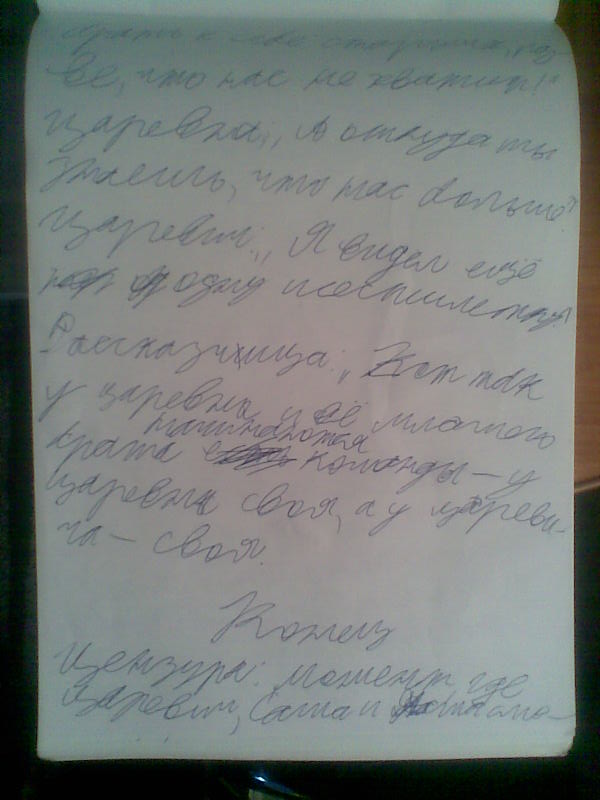 брать к себе
ве, что нас не хватит!"
Царевна: „А откуда ты
знаешь, что нас больше?"
Царевич: „Я видел ещё
одну
Рассказчица: „Вот так
у царевны и её младшего
брата начинаются команды – у
царевны своя, а у цареви-
ча – своя.
Конец
Цензура: момент, где
Царевич, Саша и